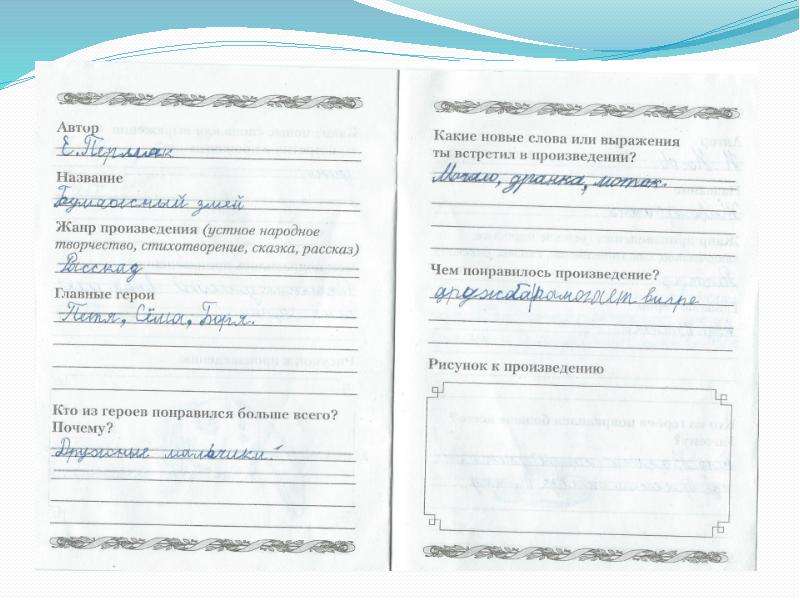 Автор
Е. Пермяк
Название
Бумажный змей
Жанр произведения (устное народное
творчество, стихотворение, сказка, рассказ)
Рассказ
Главные герои
Петя, Сёма, Боря.
Кто из героев понравился больше всего?
Почему?
Дружные мальчики.
Какие новые слова или выражения
ты встретил в произведении?
Мочало, дранка, моток.
Чем понравилось произведение?
дружба помогает в игре
Рисунок к произведению